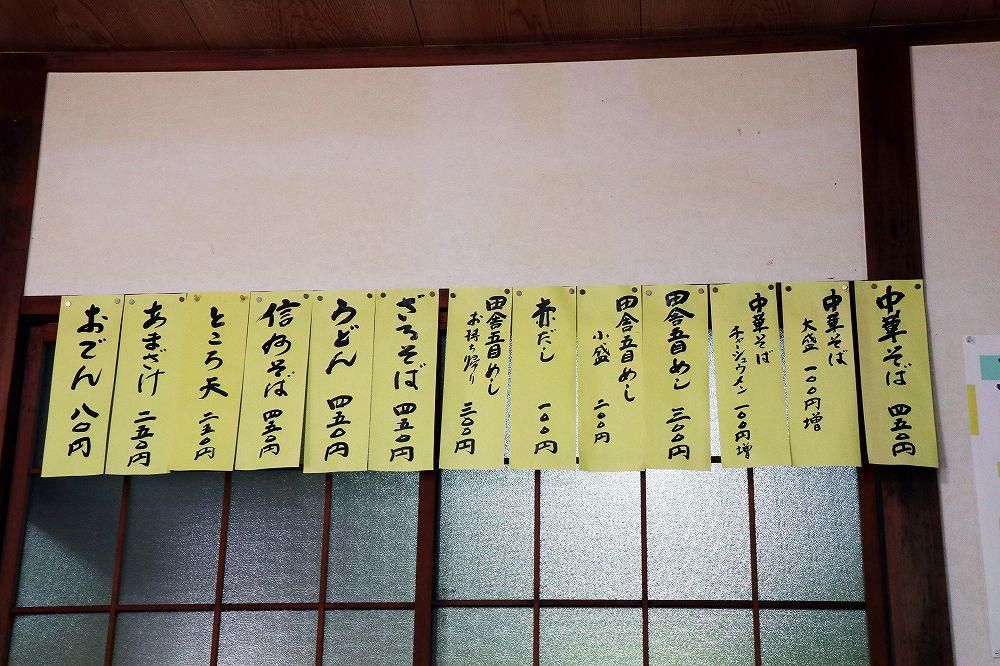 中華そば 四五〇円
中華そば
大盛 一〇〇円増
中華そば
チャーシュウメン 一〇〇円増
田舎五目めし 三〇〇円
田舎五目めし
小盛 二〇〇円
赤だし 一〇〇円
田舎五目めし
お持ち帰り 三〇〇円
ざるそば 四五〇円
うどん 四五〇円
信州そば 四五〇円
ところ天 二五〇円
あまざけ 二五〇円
おでん 八〇円